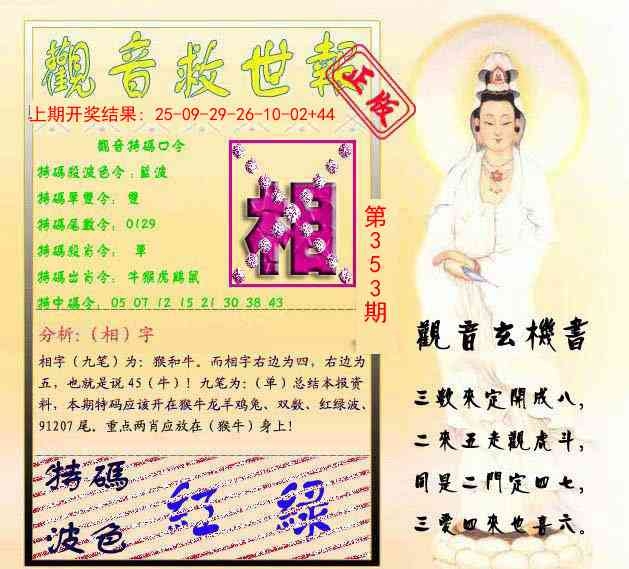 觀音救世報
正版
上期开奖结果：25-09-29-26-10-02+44
觀音特碼口令
特碼殺波色令：藍波
特碼單雙令： 雙
特碼尾數令： 0129
特碼殺肖令： 單
特碼出肖令： 牛猴虎鷄鼠
特中碼令：05 07 12 15 21 30 38 43
相
第353期
分析：（相）字
相字（九笔）为：猴和牛。而相字右边为四，右边为
五，也就是说 45（牛）！九笔为：（单）总结本报资
料，本期特码应该开在猴牛龙羊鸡兔、双数、红绿波、
91207 尾。重点两肖应放在（猴牛）身上！
特碼
波色
紅 綠
觀音玄機書
三數來定開成八，
二來五走觀虎斗，
同是二門定四七，
三愛四來也喜六。